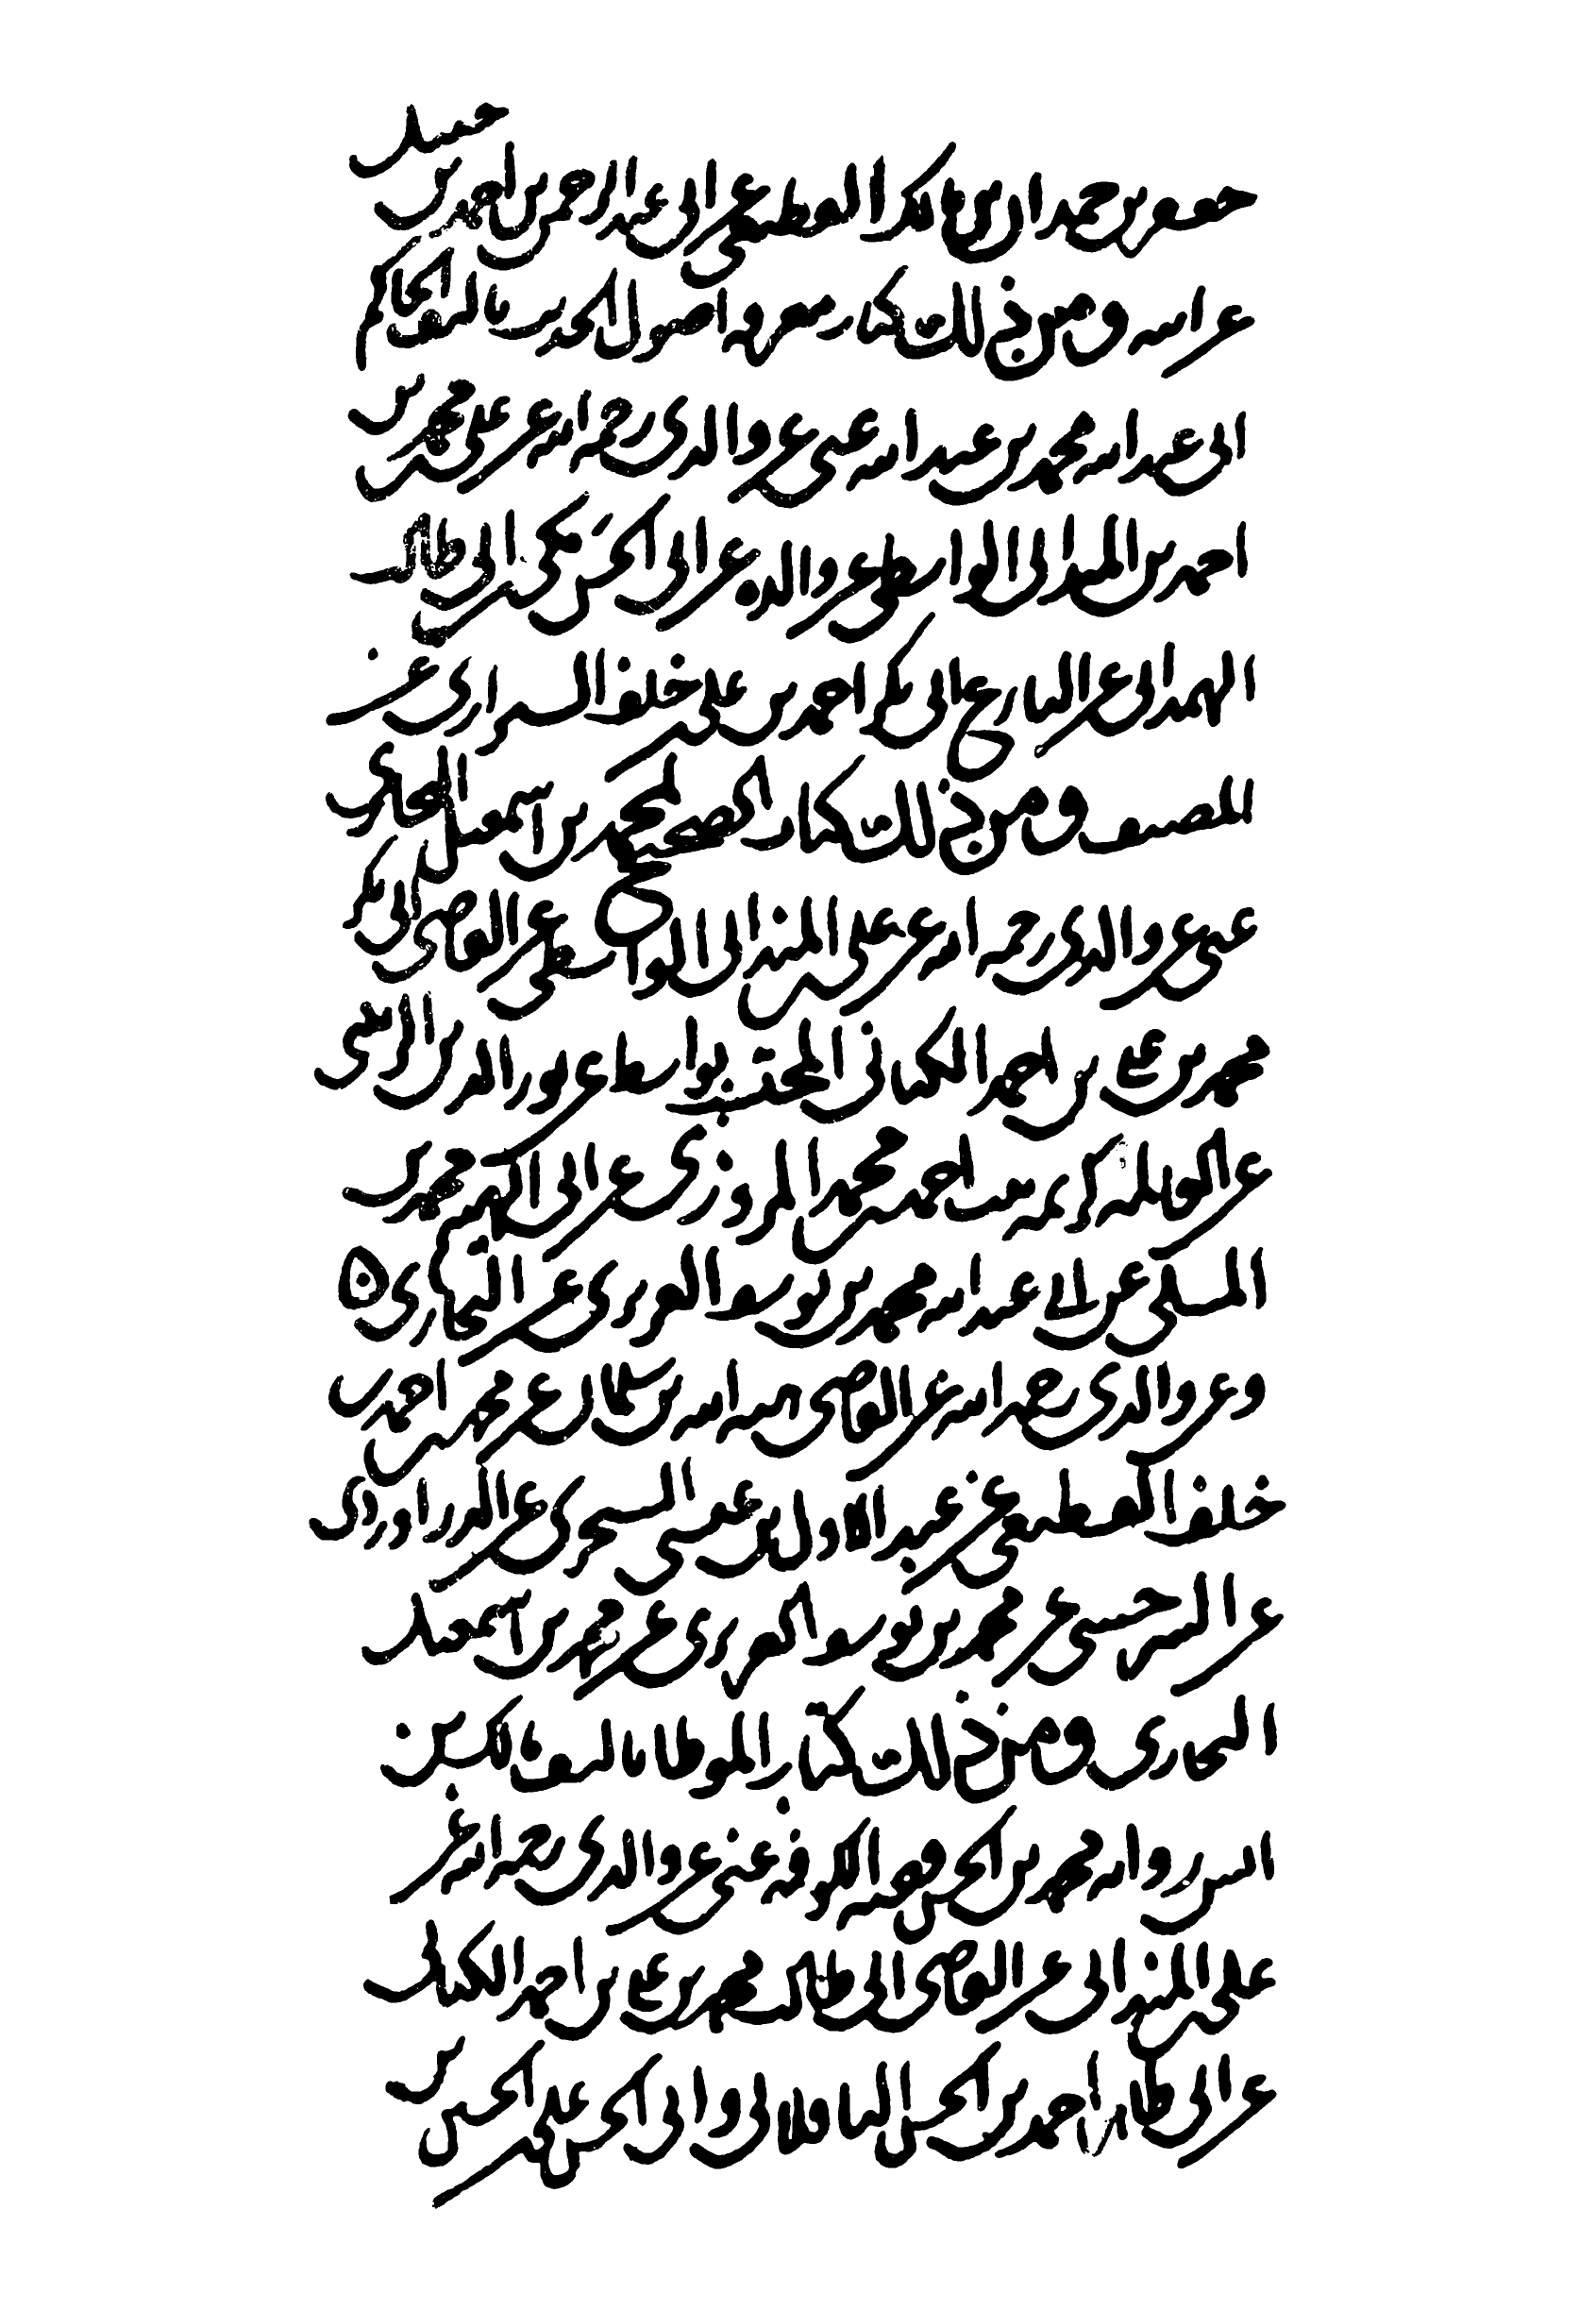 جعفر بن حمدان بن مالك القطيعي عن ابي عبد الرحمن بن احمد بن حنبل
عن ابيه ومن ذلك كتاب معرفة اصول الحديث تاليف الحاكم
ابي عبد الله محمد بن عبد الله عني عن والدي رحمه الله عن علي بن محمد بن
احمد بن المندائي الواسطي عن والده عن ابي الحسن مكي بن ابي طالب
الهمداني عن البارع ابي بكر احمد بن علي بن خلف الشيرازي عن
المصنف ومن ذلك كتاب الصحيح لمحمد بن اسمعيل البخاري
عني عن والدي رحمه الله عن علي بن المندائي الواسطي عن القاضي ابي بكر
محمد بن علي بن احمد الكتاني المحتسب بواسط عن نور الدين الزينبي
عن العالمة كريمة بنت احمد بن محمد المروزي عن ابي الهيثم محمد بن
المكي عن ابي عبد الله محمد بن يوسف الفربري عن البخاري ه
وعن والدي رحمه الله عن القاضي هبة الله بن سلمان عن محمد بن احمد بن
خلف القطيعي عن عبد الاول بن عيسى السجزي عن الدراوردي
عن السرخسي عن محمد بن يوسف الفربري عن محمد بن اسمعيل
البخاري ومن ذلك كتاب الموطا تاليف مالك بن
انس رواية محمد بن الحسن فقيه الكوفة عني عن والدي رحمه الله عن
علي بن المندائي عن القاضي ابي طالب محمد بن علي بن احمد الكتاني
عن ابي طاهر احمد بن الحسن الباقلاني وابي الحسن علي بن الحسين بن